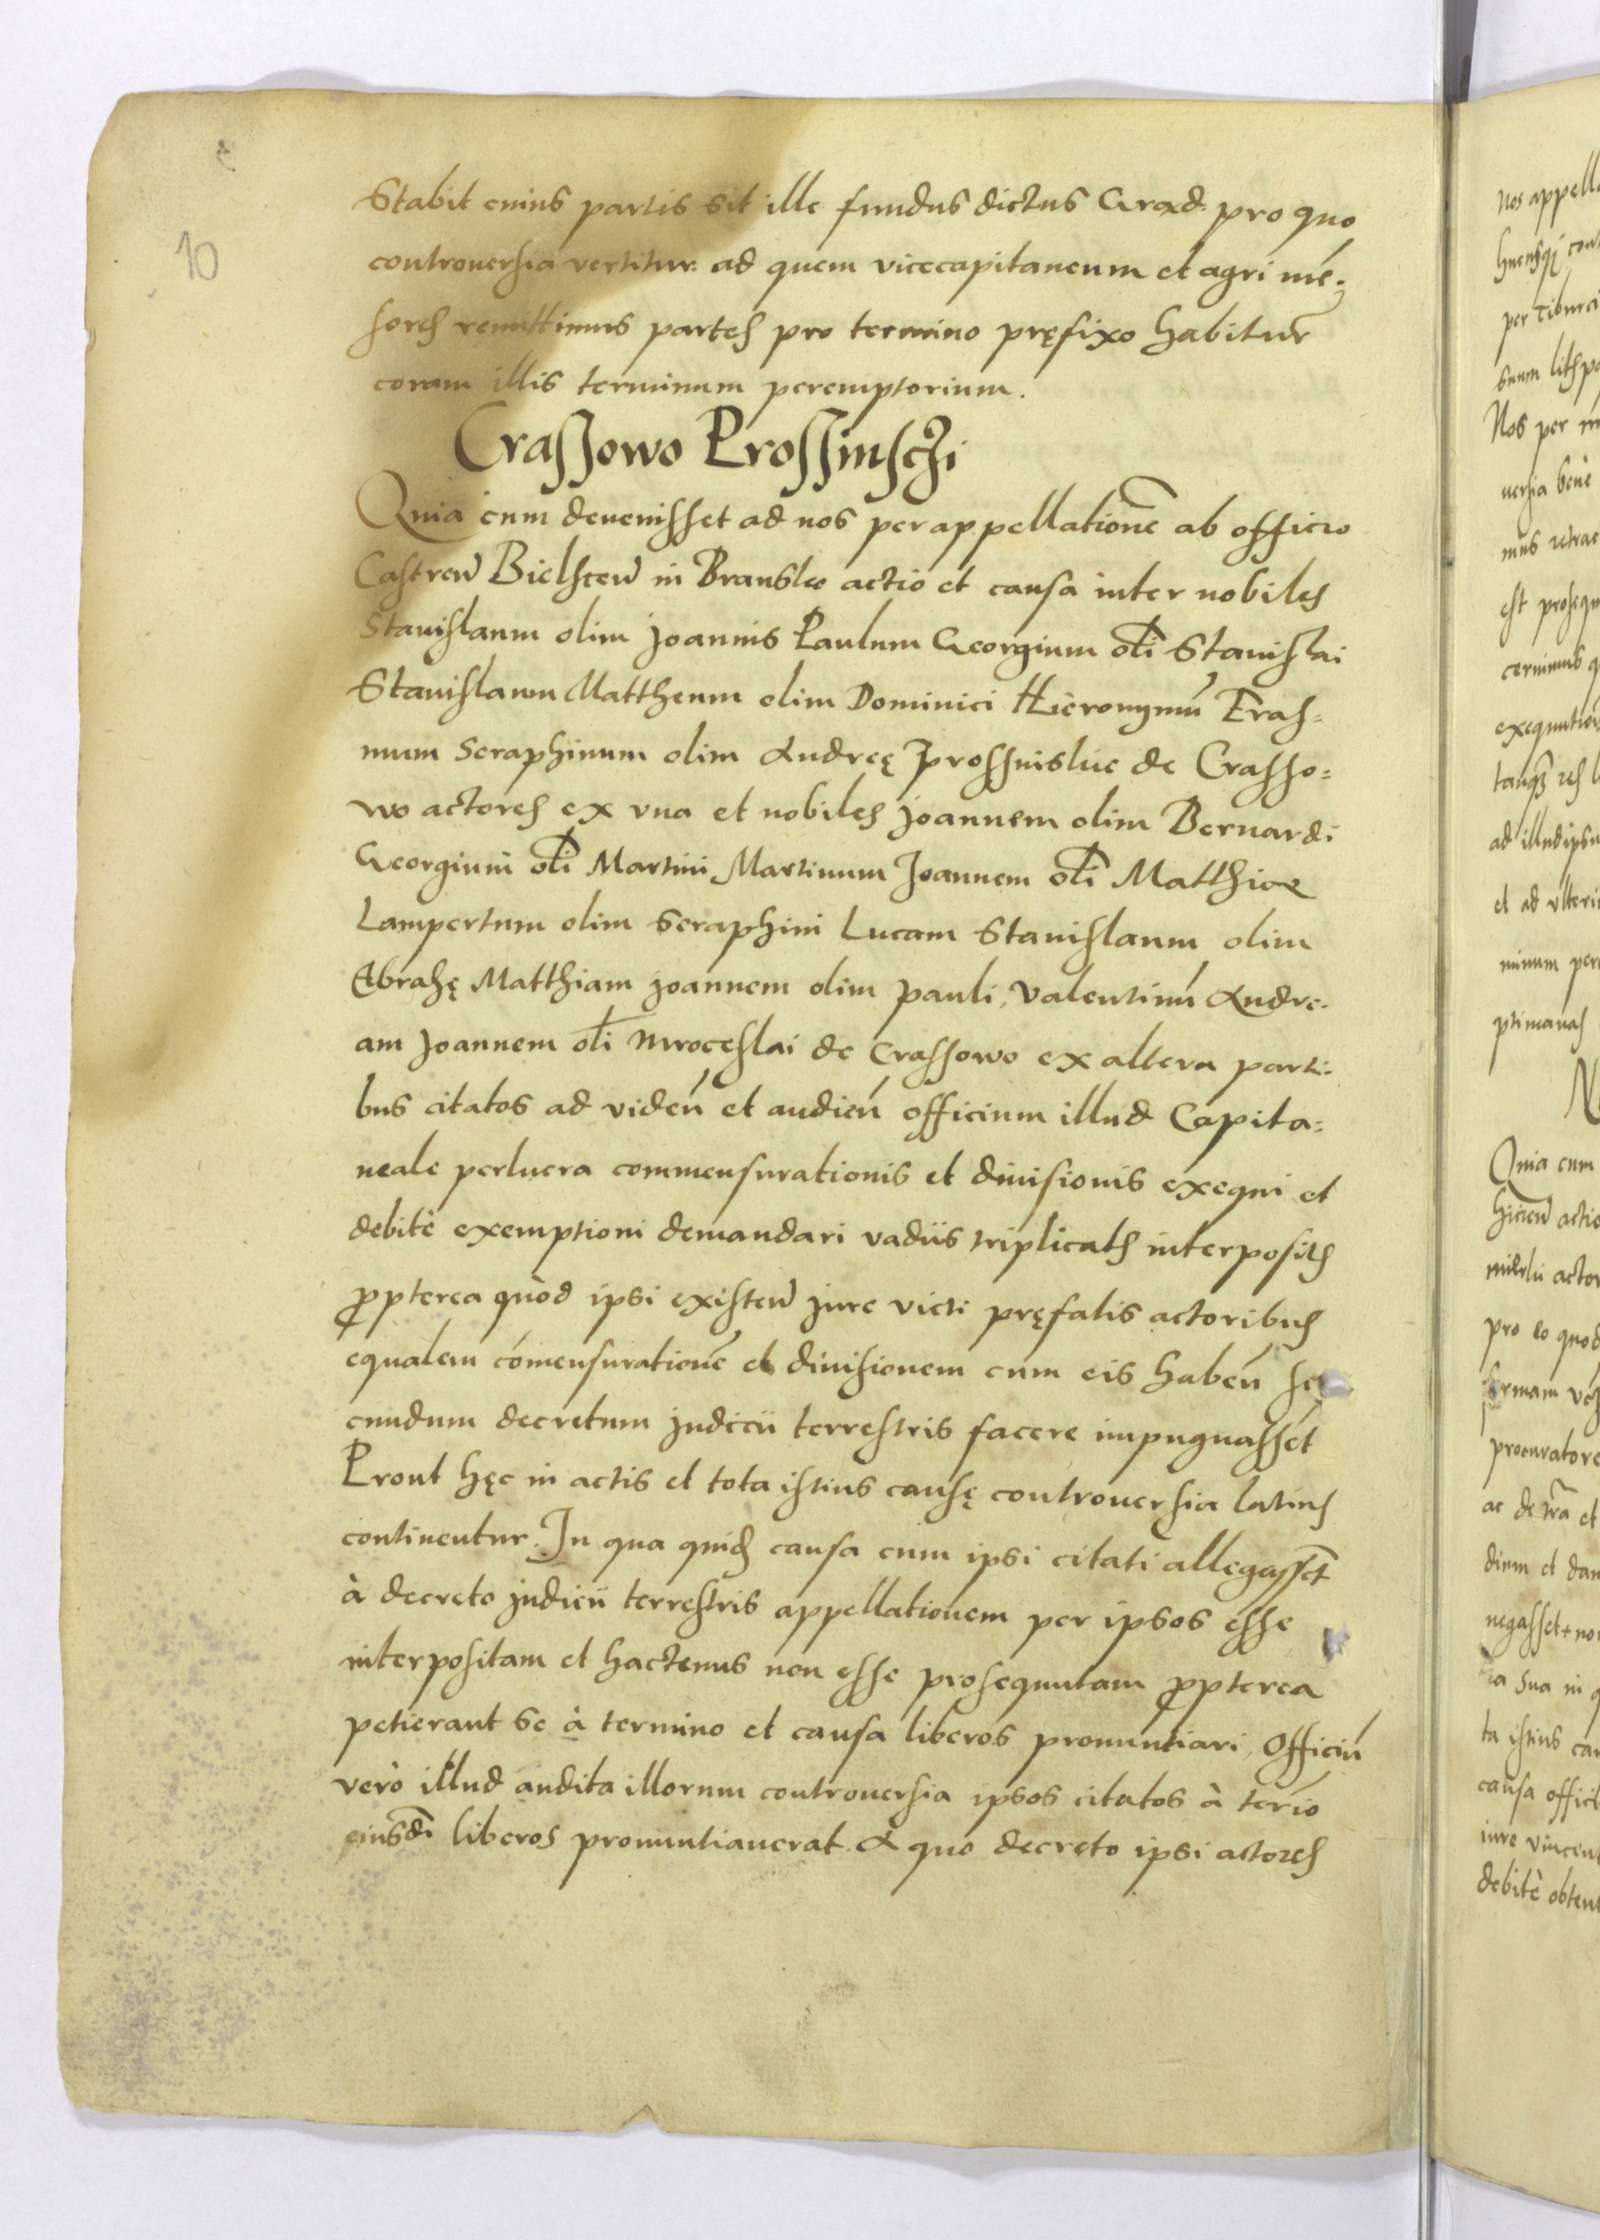 10
Stabit cuius partis sit ille fundus dictus Grąd pro quo
controuersia vertitur ad quem vicecapitaneum et agri mē:
sores remittimus partes pro termino pręfixo habitur̄
coram illis terminum peremptorium.
Crassowo Prossinsczi
Quia cum deuenisset ad nos per appellationē ab officio
Castren̄ Bielscen̄ in Bransko actio et causa inter nobiles
Stanislaum olim Joannis Paulum Georgium oli Stanislai
Stanislaum Mattheum olim Dominici Hieronymū Eras=
mum Seraphinum olim Andreę Prossinskie de Crasso=
wo actores ex vna et nobiles Joannem olim Bernardi
Georgium oli Martini Martinum Joannem oli Matthiae
Lampertum olim Seraphini Lucam Stanislaum olim
Abrahę Matthiam Joannem olim Pauli, Valentinū Andre-
am Joannem oli Mroceslai de Crassowo ex altera parti-
bus citatos ad viden̄ et audien̄ officium illud Capita=
neale per lucra commensurationis et diuisionis exequi et
debitè exemptioni demandari vadiis triplicatis interpositis
ꝓpterea quòd ipsi existen̄ jure victi pręfatis actoribus
equalem cōmensurationē et diuisionem cum eis haben̄ se
cundum decretum judicii terrestris facere impugnassēt
Prout hęc in actis et tota istius causę controuersia latius
continentur. In qua quid causa cum ipsi citati allegassēt
à decreto judicii terrestris appellationem per ipsos esse
interpositam et hactenus non esse prosequutam ꝓpterea
petierant se à termino et causa liberos pronuntiari, Officiū
verò illud audita illorum controuersia ipsos citatos à term̄io
eiusdi liberos pronuntiauerat. A quo decreto ipsi actores
Nos appella
per Tiburci
Nos per
uersia benè
mus retrac
est prosequ
cernimus q
exequution
ad illud ipsu
et ad vlteri
minum per
ptimanas
Quia cum
actio
actor
pro eo quod
procuratore
ac de et
dium et dam
negasset no
sua in q
ta istius cau
causa offici
iure vincent
debitè obtent